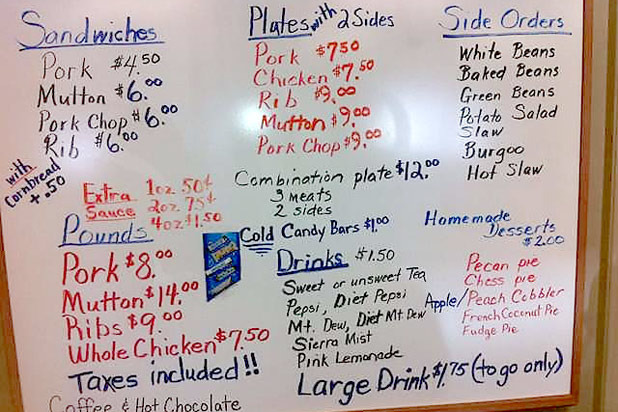 Sandwiches
Pork $4.50
Mutton $6.00
Pork Chop $6.00
Rib $6.00
with
Cornbread
+.50
Extra Sauce
1oz 50¢
2oz 75¢
4oz $1.50
Pounds
Pork $8.00
Mutton $14.00
Ribs $9.00
Whole Chicken $7.50
Taxes included!!
Coffee & Hot Chocolate
Plates with 2 Sides
Pork $7.50
Chicken $7.50
Rib $9.00
Mutton $9.00
Pork Chop $9.00
Combination plate $12.00
3 meats
2 sides
Cold Candy Bars $1.00
Drinks $1.50
Sweet or unsweet Tea
Pepsi, Diet Pepsi
Mt. Dew, Diet Mt. Dew
Sierra Mist
Pink Lemonade
Large Drink $1.75 (to go only)
Side Orders
White Beans
Baked Beans
Green Beans
Potato Salad
Slaw
Burgoo
Hot Slaw
Homemade
Desserts
$2.00
Pecan pie
Chess pie
Apple/Peach Cobbler
French Coconut Pie
Fudge Pie